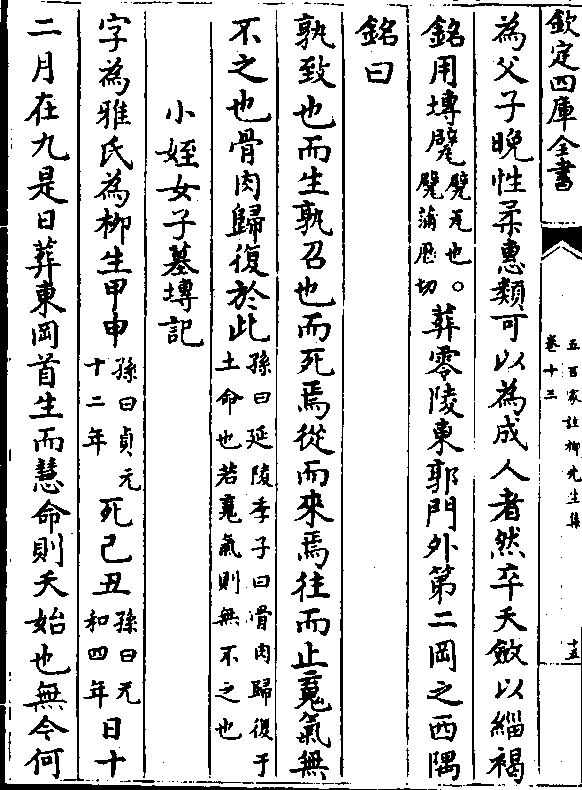 欽定四庫全書
五百家註柳先生集
卷十三
十五
為父子晚性柔惠類可以為成人者然卒夭斂以緇褐
銘用塼甓甓瓦也。甓蒲歷切葬零陵東郭門外第二岡之西隅
銘曰
孰致也而生孰召也而死焉從而來焉往而止䰟氣無
不之也骨肉歸復於此孫曰延陵季子曰骨肉歸復于土命也若䰟氣則無不之也
小姪女子墓塼記
字為雅氏為柳生甲申孫曰貞元十二年死己丑孫曰元和四年日十
二月在九是日葬東岡首生而慧命則夭始也無今何